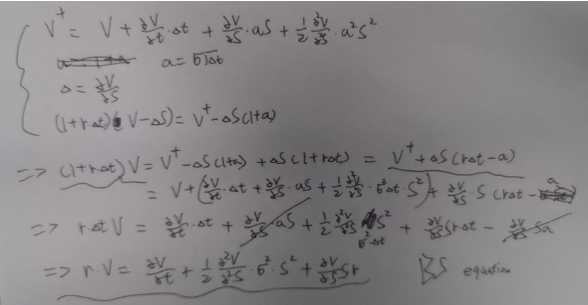 V⁺ = V + ∂V/∂t · Δt + ∂V/∂S · aS + 1/2 ∂²V/∂²S · a²S²
a = σ√Δt
Δ = ∂V/∂S
(1+rΔt)(V-ΔS) = V⁺-ΔS(1+a)
=> (1+rΔt)V = V⁺-ΔS(1+a) + ΔS(1+rΔt) = V⁺ + ΔS(rΔt-a)
= V + (∂V/∂t · Δt + ∂V/∂S · aS + 1/2 ∂²V/∂²S · σ²Δt · S²) + ∂V/∂S · S (rΔt - a)
=> rΔtV = ∂V/∂t · Δt + ∂V/∂S aS + 1/2 ∂²V/∂²S σ²Δt S² + ∂V/∂S SrΔt - ∂V/∂S Sa
=> r·V = ∂V/∂t + 1/2 ∂²V/∂²S · σ² · S² + ∂V/∂S Sr BS equation